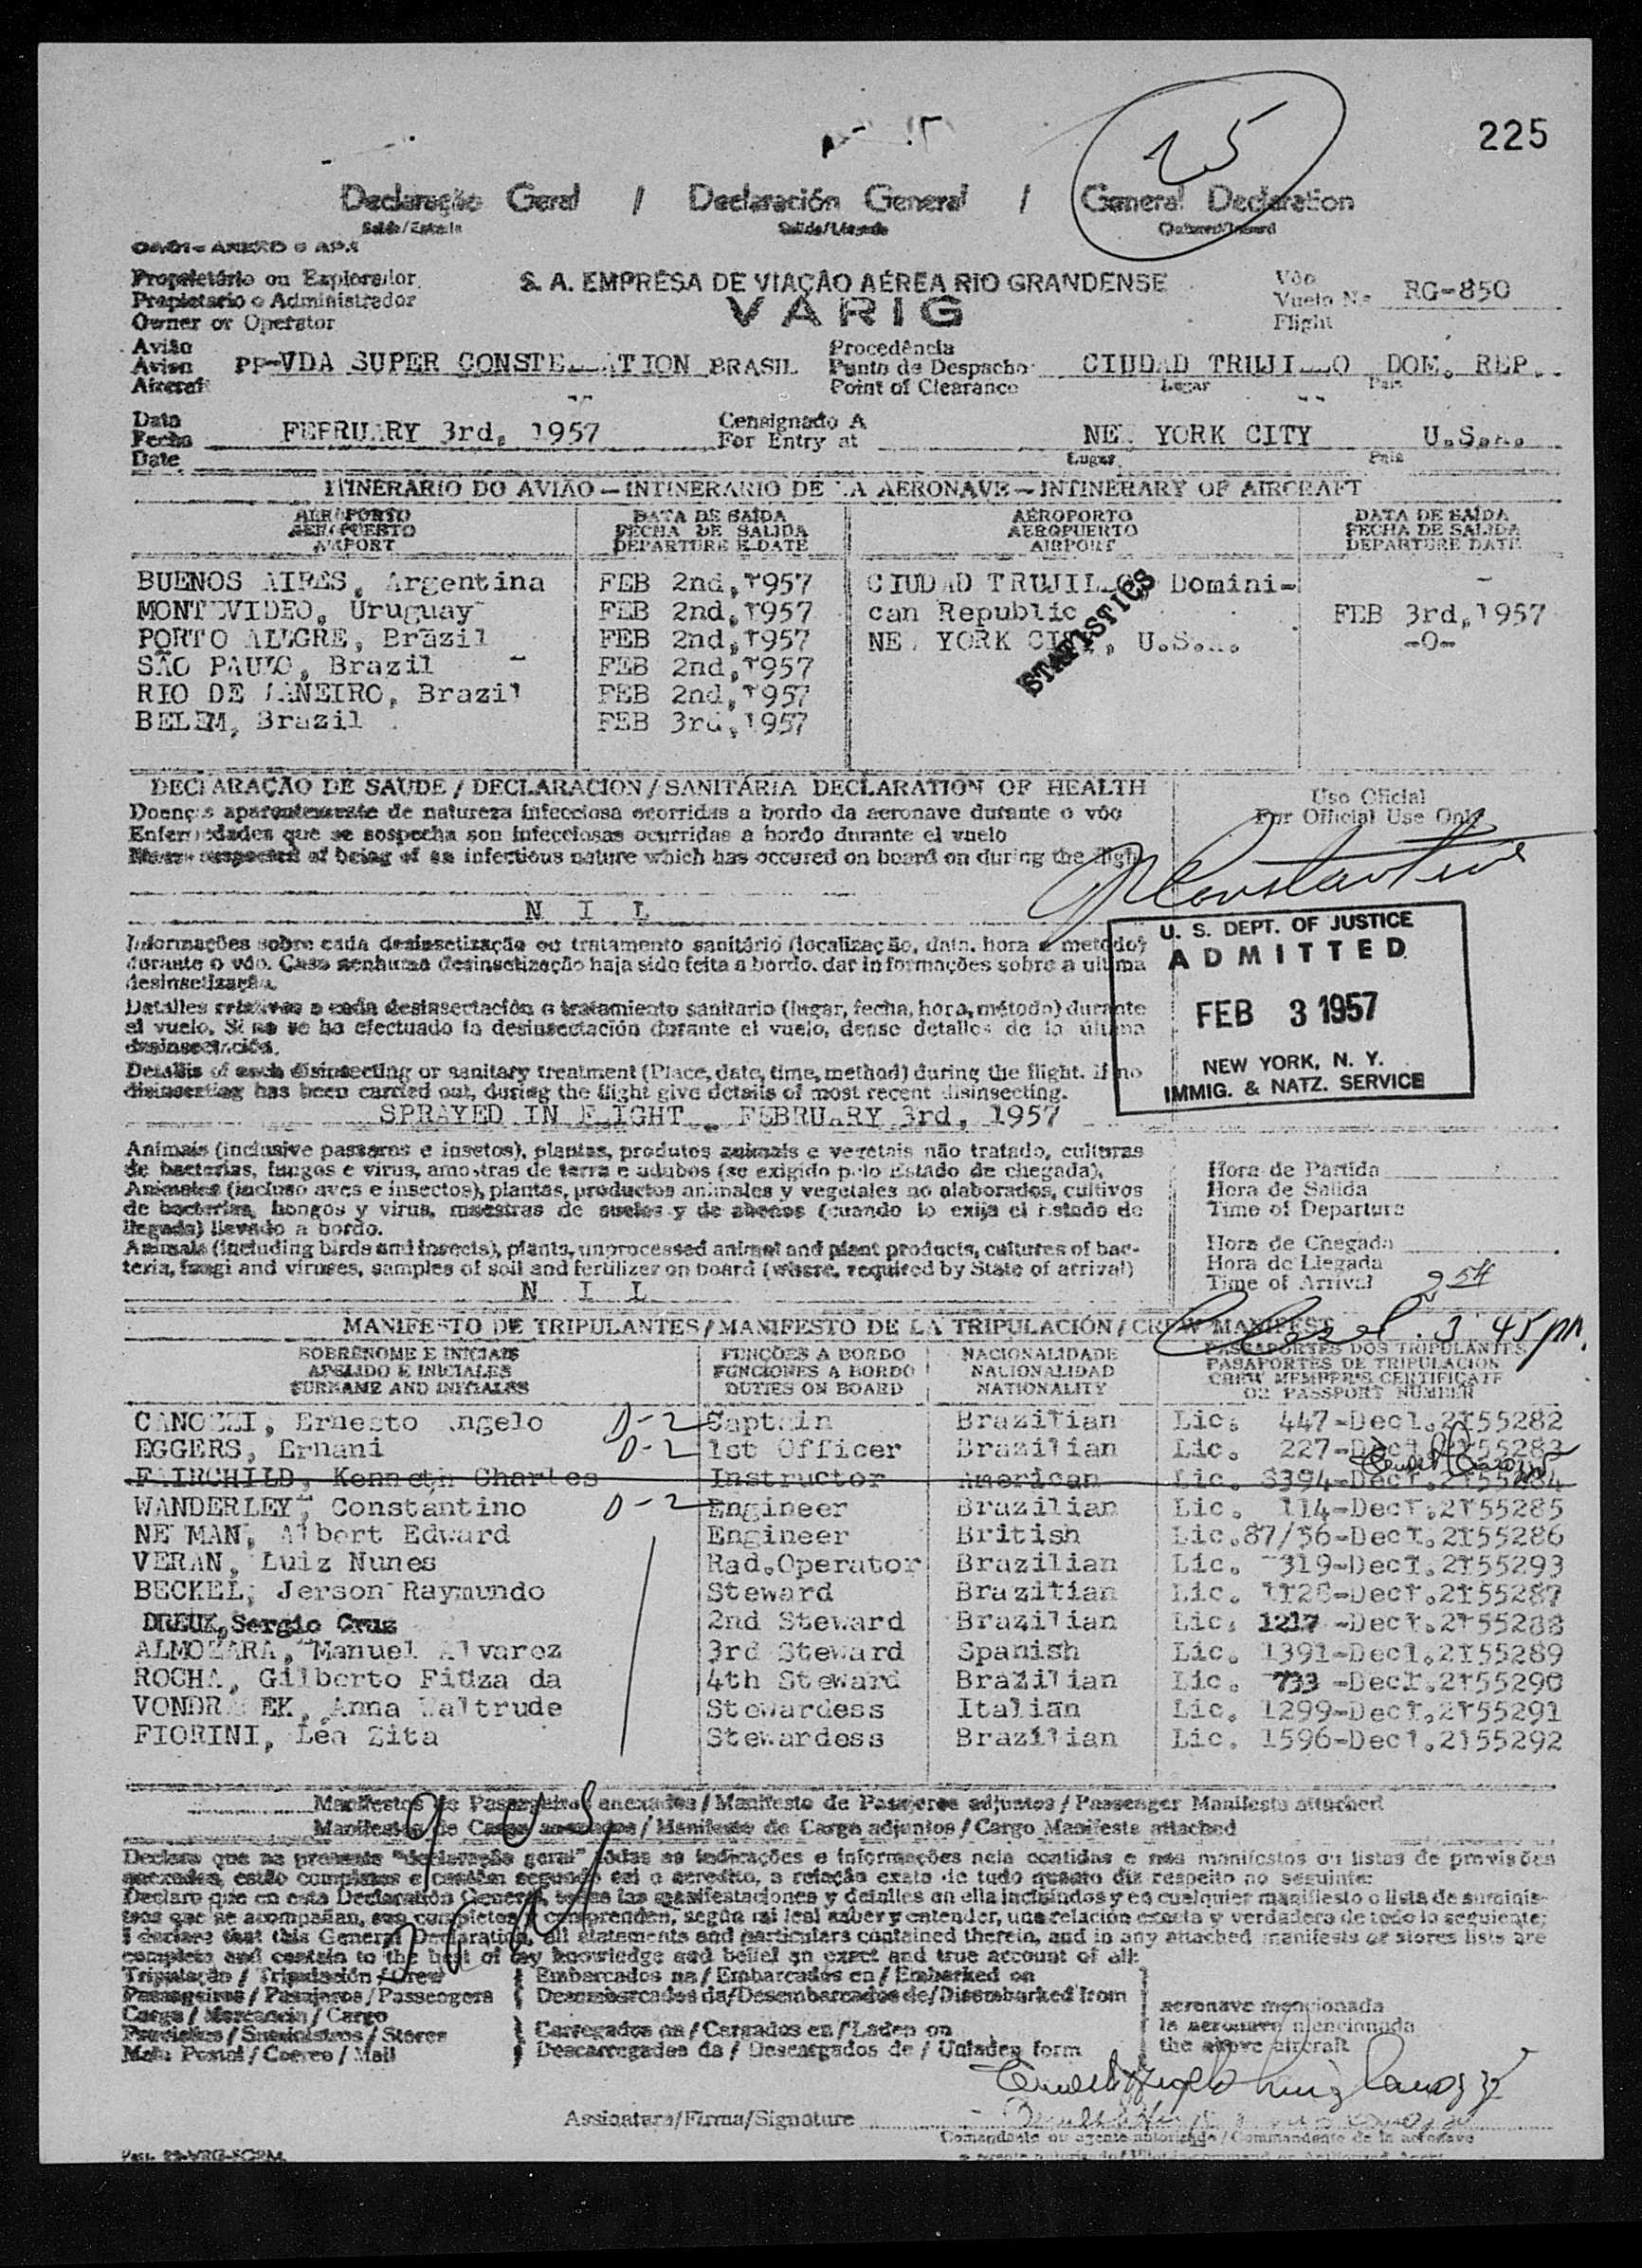 225
15
Declaração Geral / Declaración General / General Declaration
Saída/Entrada Salida/Llegada Outward/Inward
Proprietário ou Explorador
Propietario o Administrador
Owner or Operator
S. A. EMPRÊSA DE VIAÇÃO AÉREA RIO GRANDENSE
VARIG
Vôo
Vuelo Nº RG-850
Flight
Avião
Avion PP-VDA SUPER CONSTELLATION BRASIL
Aircraft
Procedência
Punto de Despacho CIUDAD TRUJILLO DOM. REP.
Point of Clearance Lugar País
Data
Fecha FEBRUARY 3rd, 1957
Date
Consignado A
For Entry at NEW YORK CITY U.S.A.
Lugar País
ITINERÁRIO DO AVIÃO — INTINERARIO DE LA AERONAVE — INTINERARY OF AIRCRAFT
AEROPORTO DATA DE SAÍDA AEROPORTO DATA DE SAÍDA
AEROPUERTO FECHA DE SALIDA AEROPUERTO FECHA DE SALIDA
AIRPORT DEPARTURE DATE AIRPORT DEPARTURE DATE
BUENOS AIRES, Argentina FEB 2nd,1957 CIUDAD TRUJILLO, Domini-
MONTEVIDEO, Uruguay FEB 2nd,1957 can Republic FEB 3rd,1957
PORTO ALEGRE, Brazil FEB 2nd,1957 NEW YORK CITY, U.S.A. -0-
SÃO PAULO, Brazil FEB 2nd,1957
RIO DE JANEIRO, Brazil FEB 2nd,1957
BELEM, Brazil FEB 3rd,1957
STATISTICS
DECLARAÇÃO DE SAÚDE / DECLARACION / SANITÁRIA DECLARATION OF HEALTH
Doenças aparentemente de natureza infecciosa ocorridas a bordo da aeronave durante o vôo
Enfermedades que se sospecha son infecciosas ocurridas a bordo durante el vuelo
suspected of being of an infectious nature which has occured on board on during the flight
N I L
Uso Oficial
For Official Use Only
U. S. DEPT. OF JUSTICE
ADMITTED
FEB 3 1957
NEW YORK, N. Y.
IMMIG. & NATZ. SERVICE
Informações sobre cada desinsetização ou tratamento sanitário (localização, data, hora e metodo)
durante o vôo. Caso nenhuma desinsetização haja sido feita a bordo, dar informações sobre a ultima
desinsetização.
Detalles relativos a cada desinsectación o tratamiento sanitario (lugar, fecha, hora, método) durante
el vuelo. Si no se ha efectuado la desinsectación durante el vuelo, dense detalles de la última
desinsectación.
Details of each disinsecting or sanitary treatment (Place, date, time, method) during the flight. If no
disinsecting has been carried out, during the flight give details of most recent disinsecting.
SPRAYED IN FLIGHT - FEBRUARY 3rd, 1957
Animais (inclusive passaros e insetos), plantas, produtos animais e vegetais não tratado, culturas
de bacterias, fungos e virus, amostras de terra e adubos (se exigido pelo Estado de chegada).
Animales (incluso aves e insectos), plantas, productos animales y vegetales no elaborados, cultivos
de bacterias, hongos y virus, muestras de suelos y de abonos (cuando lo exija el Estado de
llegada) llevado a bordo.
Animals (including birds and insects), plants, unprocessed animal and plant products, cultures of bac-
teria, fungi and viruses, samples of soil and fertilizer on board (where, required by State of arrival)
N I L
Hora de Partida
Hora de Salida
Time of Departure
Hora de Chegada
Hora de Llegada
Time of Arrival 2 54
3 45 pm.
MANIFESTO DE TRIPULANTES / MANIFESTO DE LA TRIPULACIÓN / CREW MANIFEST
SOBRENOME E INICIAIS FUNÇÕES A BORDO NACIONALIDADE PASSAPORTES DOS TRIPULANTES
APELIDO E INICIALES FUNCIONES A BORDO NACIONALIDAD PASAPORTES DE TRIPULACION
SURNAME AND INITIALES DUTIES ON BOARD NATIONALITY CREW MEMBER'S CERTIFICATE
OR PASSPORT NUMBER
CANOZZI, Ernesto Angelo D-2 Captain Brazilian Lic. 447-Decl.2155282
EGGERS, Ernani D-2 1st Officer Brazilian Lic. 227-Decl.2155283
FAIRCHILD, Kenneth Charles Instructor American Lic. 3394-Decl.2155284
WANDERLEY, Constantino D-2 Engineer Brazilian Lic. 114-Decl.2155285
NEWMAN, Albert Edward Engineer British Lic.87/56-Decl.2155286
VERAN, Luiz Nunes Rad.Operator Brazilian Lic. 319-Decl.2155293
BECKEL, Jerson Raymundo Steward Brazilian Lic. 1128-Decl.2155287
DREUX, Sergio Cruz 2nd Steward Brazilian Lic. 1217 -Decl.2155288
ALMOZARA, Manuel Alvarez 3rd Steward Spanish Lic. 1391-Decl.2155289
ROCHA, Gilberto Fiuza da 4th Steward Brazilian Lic. 733 -Decl.2155290
VONDRACEK, Anna Waltrude Stewardess Italian Lic. 1299-Decl.2155291
FIORINI, Léa Zita Stewardess Brazilian Lic. 1596-Decl.2155292
Manifestos de Passageiros anexados / Manifesto de Pasajeros adjuntos / Passenger Manifests attached
Manifestos de Carga anexados / Manifesto de Carga adjuntos / Cargo Manifests attached
Declaro que na presente "declaração geral" todas as indicações e informações nela contidas e nos manifestos ou listas de provisões
anexadas, estão completas e contêm segundo sei o acredito, a relação exata de tudo quanto diz respeito no seguinte:
Declaro que en esta Declaración General, todas las manifestaciones y detalles en ella incluindos y en cualquier manifiesto o lista de suminis-
tros que se acompañan, son completos y comprenden, según mi leal saber y entender, una relación exacta y verdadera de todo lo seguiente;
I declare that this General Declaration, all statements and particulars contained therein, and in any attached manifests or stores lists are
complete and contain to the best of my knowledge and belief an exact and true account of all:
Tripulação / Tripulación / Crew Embarcados na / Embarcados en / Embarked on
Passageiros / Pasajeros / Passengers Desembarcados da/Desembarcados de/Disembarked from
Carga / Mercancia / Cargo
Provisões / Suministros / Stores Carregados na / Cargados en / Laden on
Mala Postal / Correo / Mail Descarregados da / Descargados de / Unladen form
aeronave mencionada
la aeronave mencionada
the above aircraft
Assinatura/Firma/Signature
Comandante ou agente autorizado / Commandante de la aeronave